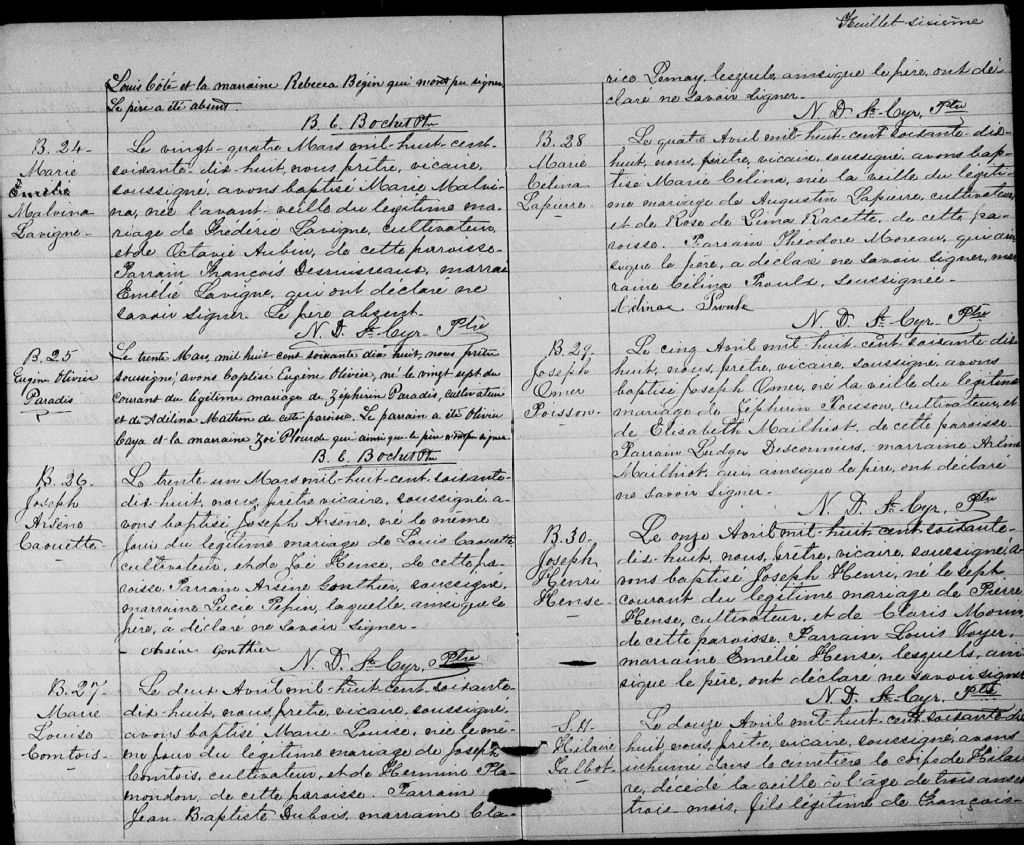 Feuillet sixième
Louis Côté et la marraine Rebecca Bégin qui n'ont pu signer
Le père a été absent.
B. C. Bochet Ptr.
B. 24-
Marie
Emélie
Malvina
Lavigne-
Le vingt-quatre Mars mil-huit-cent-
soixante-dix-huit, nous prêtre, vicaire,
soussigné, avons baptisé Marie Malvi-
na, née l'avant-veille du légitime ma-
riage de Fréderic Lavigne, cultivateur,
et de Octavie Aubin, de cette paroisse.
Parrain François Desruisseaux, marrai
Emélie Lavigne, qui ont déclaré ne
savoir signer. Le père absent.
N. D. St-Cyr. Ptre
B. 25
Eugène Olivier
Paradis
Le trente Mars, mil huit cent soixante dix huit, nous prêtre
soussigné, avons baptisé Eugène Olivier, né le vingt sept du
courant du légitime mariage de Zéphirin Paradis, cultivateur
et de Adelina Mathon de cette paroisse. Le parrain a été Olivier
Caya et la marraine Zoé Plourde qui ainsi que le père n'ont pu signer.
B. C. Bochet Ptr.
B. 26-
Joseph
Arsène
Caouette-
Le trente un Mars mil-huit-cent-soixante-
dix-huit, nous, prêtre vicaire, soussigné, a-
vons baptisé Joseph Arsène, né le même
jour du légitime mariage de Louis Caouette
cultivateur, et de Zoé Hense, de cette pa-
roisse. Parrain Arsène Gonthier, soussigné,
marraine Lucie Pépin, laquelle, ainsi que le
père, a déclaré ne savoir signer-
- Arsène Gonthier
N. D. St-Cyr. Ptre
B. 27-
Marie
Louise
Comtois-
Le deux Avril mil-huit-cent-soixante-
dix-huit, nous, prêtre, vicaire, soussigné,
avons baptisé Marie Louise, née le mê-
me jour du légitime mariage de Joseph
Comtois, cultivateur, et de Hermine Pla-
mondon, de cette paroisse. Parrain
Jean Baptiste Dubois, marraine Cla-
rice Lemay, lesquels, ainsi que le père, ont dé-
claré ne savoir signer-
N. D. St-Cyr, Ptre
B. 28
Marie
Celina
Lapierre-
Le quatre Avril mil-huit-cent soixante-dix-
huit, nous, prêtre, vicaire, soussigné, avons bap-
tisé Marie Celina, née la veille du légiti-
me mariage de Augustin Lapierre, cultivateur,
et de Rose de Lima Racette, de cette pa-
roisse. Parrain Théodore Moreau, qui ain-
si que le père, a déclaré ne savoir signer, mar-
raine Célina Proulx, soussignée-
Célina Proulx
N. D. St-Cyr. Ptre
B. 29-
Joseph
Omer
Poisson-
Le cinq Avril mil-huit-cent-soixante-dix-
huit, nous, prêtre, vicaire, soussigné avons
baptisé Joseph Omer, né la veille du légitime
mariage de Zéphirin Poisson, cultivateur, et
de Elisabeth Mailhiot, de cette paroisse.
Parrain Ludger Descormiers, marraine Arline
Mailhiot, qui, ainsi que le père, ont déclaré
ne savoir signer.
N. D. St-Cyr, Ptre
B. 30-
Joseph
Henri
Hense-
Le onze Avril mil-huit cent soixante-
dix-huit, nous, prêtre, vicaire, soussigné, a-
vons baptisé Joseph Henri, né le sept
courant du légitime mariage de Pierre
Hense, cultivateur, et de Claris
de cette paroisse. Parrain Louis Voyer,
marraine Emélie Hense, lesquels, ain-
si que le père, ont déclaré ne savoir signer
N. D. St-Cyr. Ptre
S. 11-
Hilaire
Talbot-
Le douze Avril mil-huit-cent-soixante-dix
huit, nous, prêtre, vicaire, soussigné, avons
inhumé dans le cimetière le corps de Hilai-
re, décédé la veille à l'âge de trois ans et
trois mois, fils légitime de François-